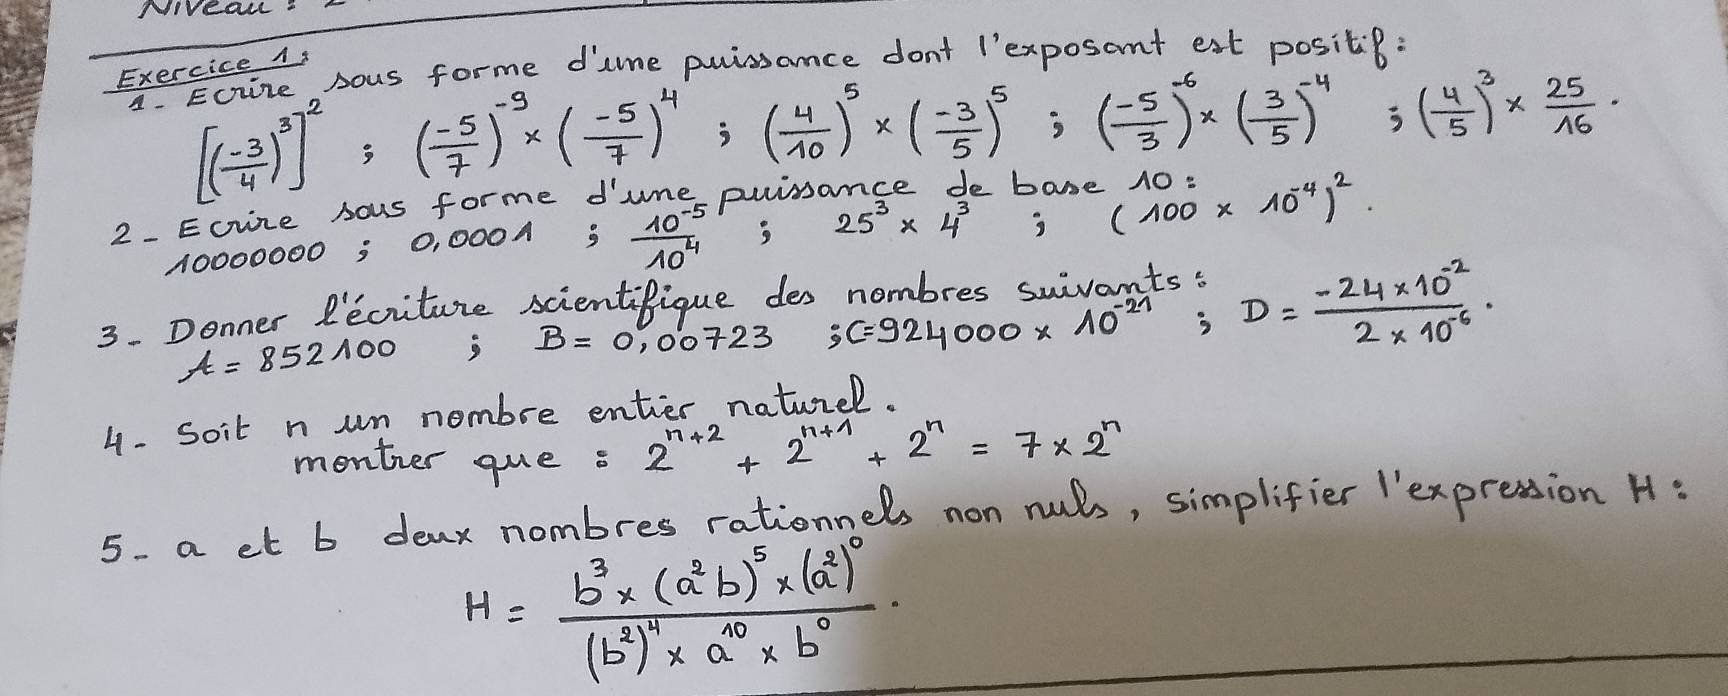 Niveau :
Exercice 1 :
1- Ecrire sous forme d'une puissance dont l'exposant est positif :
[(-3/4)^3]^2 ; (-5/7)^-9 × (-5/7)^4 ; (4/10)^5 × (-3/5)^5 ; (-5/3)^-6 × (3/5)^-4 ; (4/5)^3 × 25/16 .
2- Ecrire sous forme d'une puissance de base 10 :
10000000 ; 0,0001 ; 10^-5/10^4 ; 25^3 × 4^3 ; (100 × 10^-4)^2 .
3- Donner l'écriture scientifique des nombres suivants :
A = 852100 ; B = 0,00723 ; C=924000 × 10^-21 ; D = -24×10^-2 / 2×10^-6 .
4- Soit n un nombre entier naturel.
montrer que : 2^n+2 + 2^n+1 + 2^n = 7 × 2^n
5- a et b deux nombres rationnels non nuls, simplifier l'expression H :
H = b^3 × (a^2 b)^5 × (a^2)^0 / (b^2)^4 × a^10 × b^0 .